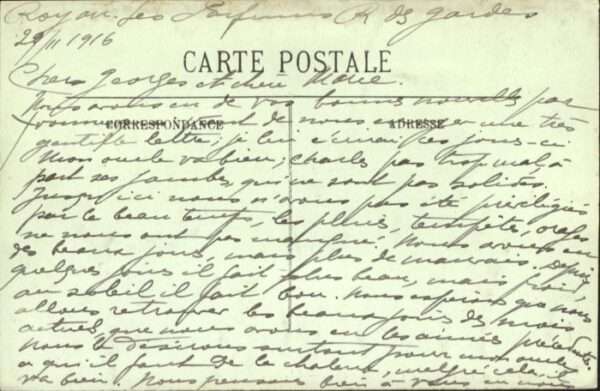 Royan. Les Parfums R des gardes
29/11 1916
CARTE POSTALE
Chers Georges et chère Marie.
Nous avons eu de vos bonnes nouvelles par
de nous envoyer une très
CORRESPONDANCE
ADRESSE
gentille lettre, je lui écrirai ces jours-ci
Mon oncle va bien; Charles pas trop mal, à
part ses jambes, qui ne sont pas solides.
Jusqu'ici nous n'avons pas été privilégiés
par le beau temps, les pluies, tempêtes, orages
ne nous ont pas manqué. Nous avons eu
des beaux jours, mais plus de mauvais. Depuis
quelques jours il fait plus beau, mais froid,
au soleil il fait bon. Nous espérons que nous
allons retrouver les beaux jours des mois
que nous avons eu les années précédentes.
Nous le désirons surtout pour mon oncle
à qui il faut de la chaleur, malgré cela, il
va bien. Nous pensons bien à vous